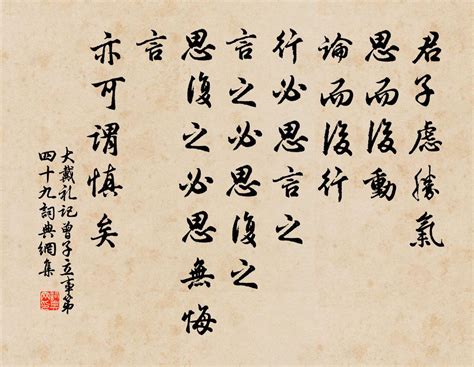 君子慮勝氣
思而後動
論而後行
行必思言之
言之必思復之
思復之必思無悔
言
亦可謂慎矣
大戴礼记曾子立事第
四十九詞典網集